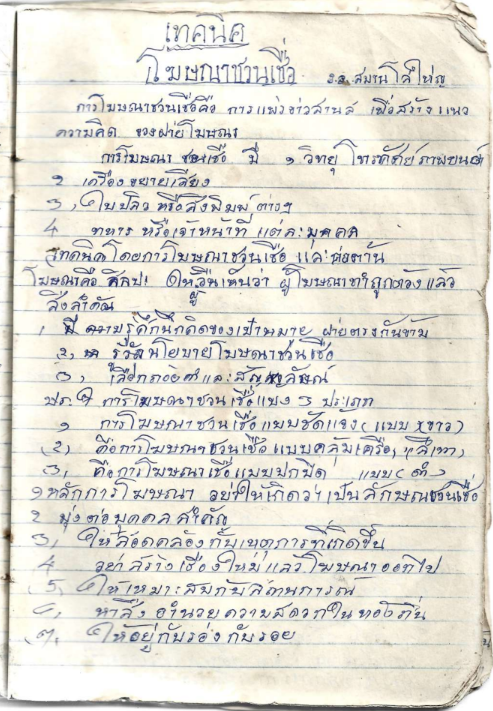 เทคนิค
โฆษณาชวนเชื่อ ร.อ. สมาน โล่ใหญ่
การโฆษณาชวนเชื่อคือ การแพร่ข่าวสานส เพื่อสร้าง แนว
ความคิด ของฝ่ายโฆษณา
การโฆษณา ชวนเชื่อ มี ๑ วิทยุ โทรทัศน์ ภาพยนต์
๒ เครื่องขยายเสียง
3, ใบปลิว หรือสิ่งพิมพ์ ต่างๆ
4 ทหาร หรือเจ้าหน้าที่ แต่ละบุคคล
เทคนิคโดยการโฆษณาชวนเชื่อ และต่อต้าน
โฆษณาคือ ศิลปะ ให้อื่นเห็นว่า ผู้โฆษณาทำถูกต้องแล้ว
ผู้
สิ่งสำคัญ
1, มี ความรู้สึกนึกคิดของเป้าหมาย ฝ่ายตรงกันข้าม
2, รู้วิธีนโยบายโฆษณาชวนเชื่อ
3, เลือกถ้อยคำและสัญญาลักษณ์
การโฆษณาชวนเชื่อแบ่ง 3 ประเภท
๑ การโฆษณาชวนเชื่อแบบชัดแจ้ง (แบบ ขาว)
2, คือการโฆษณาชวนเชื่อ แบบคลุมเครือ, (สีเทา)
3, คือการโฆษณาเชื่อแบบปกปิด แบบ (ดำ)
๑ หลักการโฆษณา อย่าให้เกิดว่าเป็นลักษณชวนเชื่อ
2 มุ่งต่อบุคคลสำคัญ
3, ให้สอดคล้องกับเหตุการที่เกิดขึ้น
4 อย่าสร้างเรื่องใหม่ แล้วโฆษณาออกไป
5, ให้เหมาะสมกับสถานการณ์
6, หาสิ่ง อำนวยความสดวกในท้องถิ่น
7, ให้อยู่กับร่องกับรอย